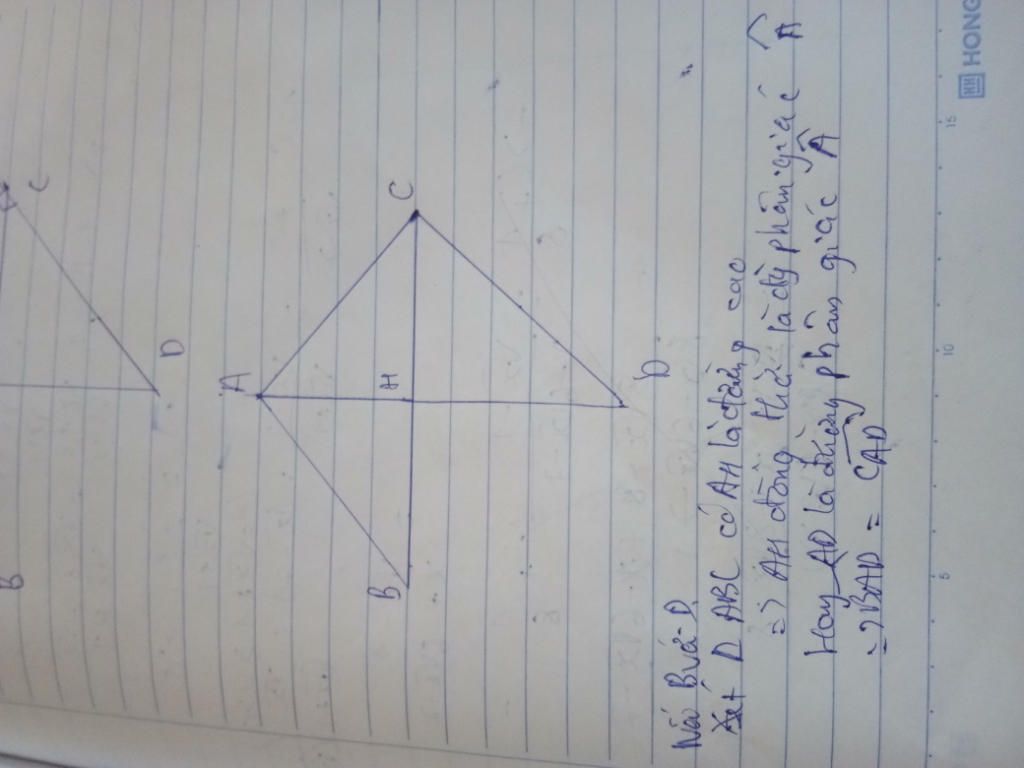 B
C
D
A
B
H
C
D
Nối B và D
Xét D ABC có AH là đường cao
=> AH đồng thời là đg phân giác Â
Hay AD là đường phân giác Â
=> BAD = CAD
5
10
15
HONG